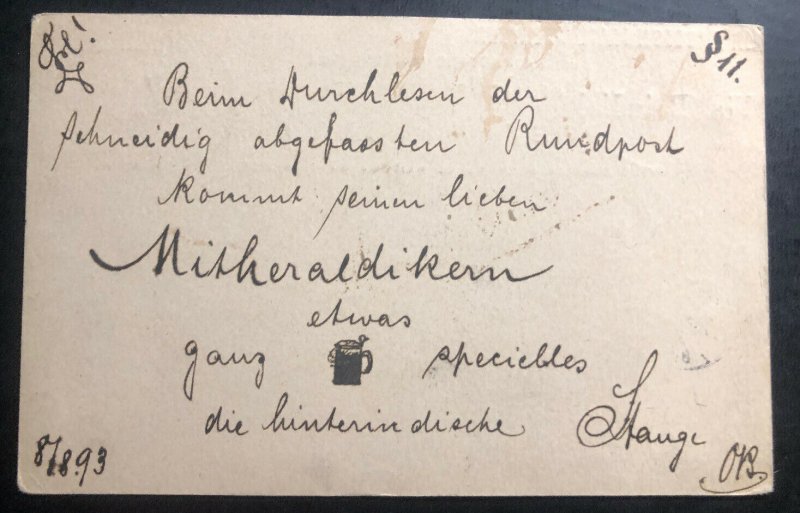 § 11.
Beim Durchlesen der
schneidig abgefassten Rundpost
kommt seinen lieben
Mitheraldikern
etwas
ganz specielles
die hinterindische Stange
8/8.93